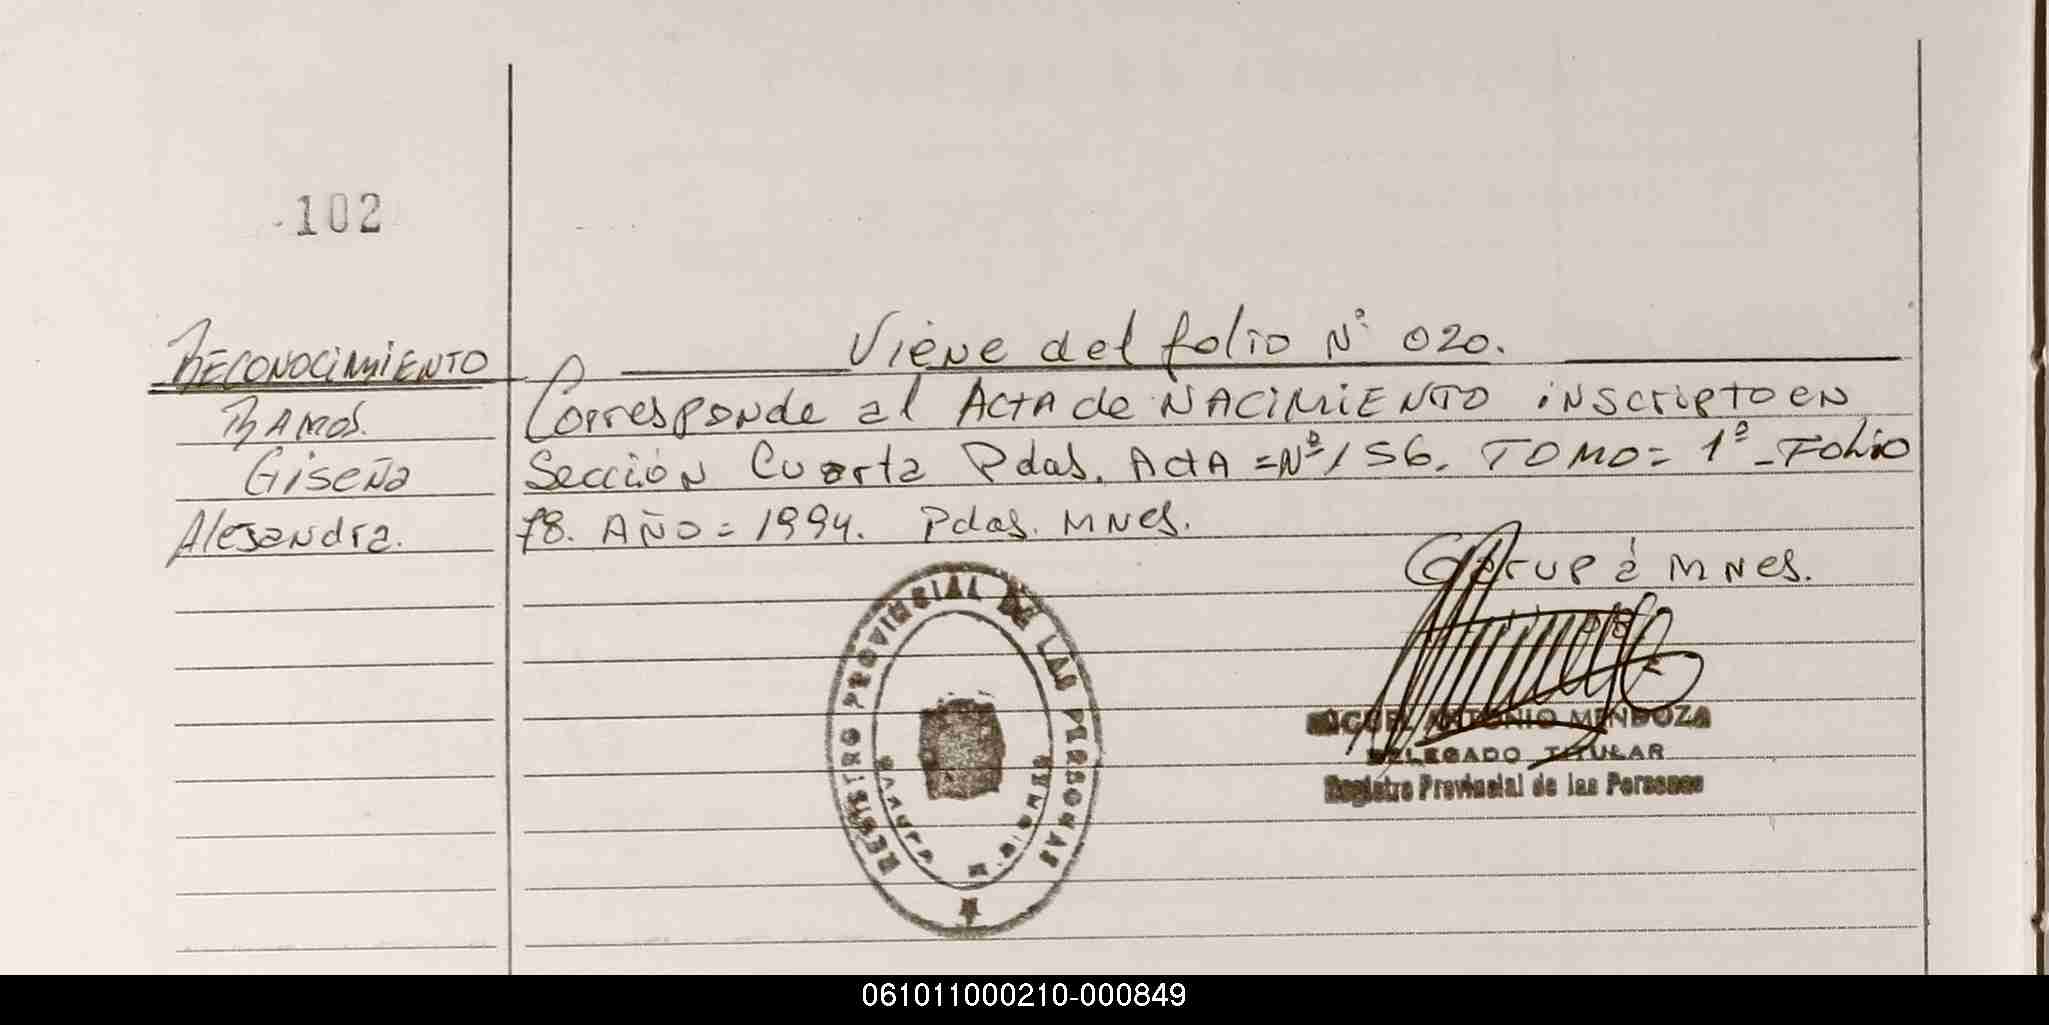 102
Viene del folio Nº 020.
RECONOCIMIENTO
RAMOS. Corresponde al ACTA de NACIMIENTO inscripto en
Giseña Sección Cuarta Pdas. Acta = Nº 156. TOMO = 1º - Folio
Alejandra. 78. AÑO = 1994. Pdas. MNes.
Garupá MNes.
REGISTRO PROVINCIAL DE LAS PERSONAS
GARUPA
MISIONES
MIGUEL ANTONIO MENDOZA
DELEGADO TITULAR
Registro Provincial de las Personas
061011000210-000849